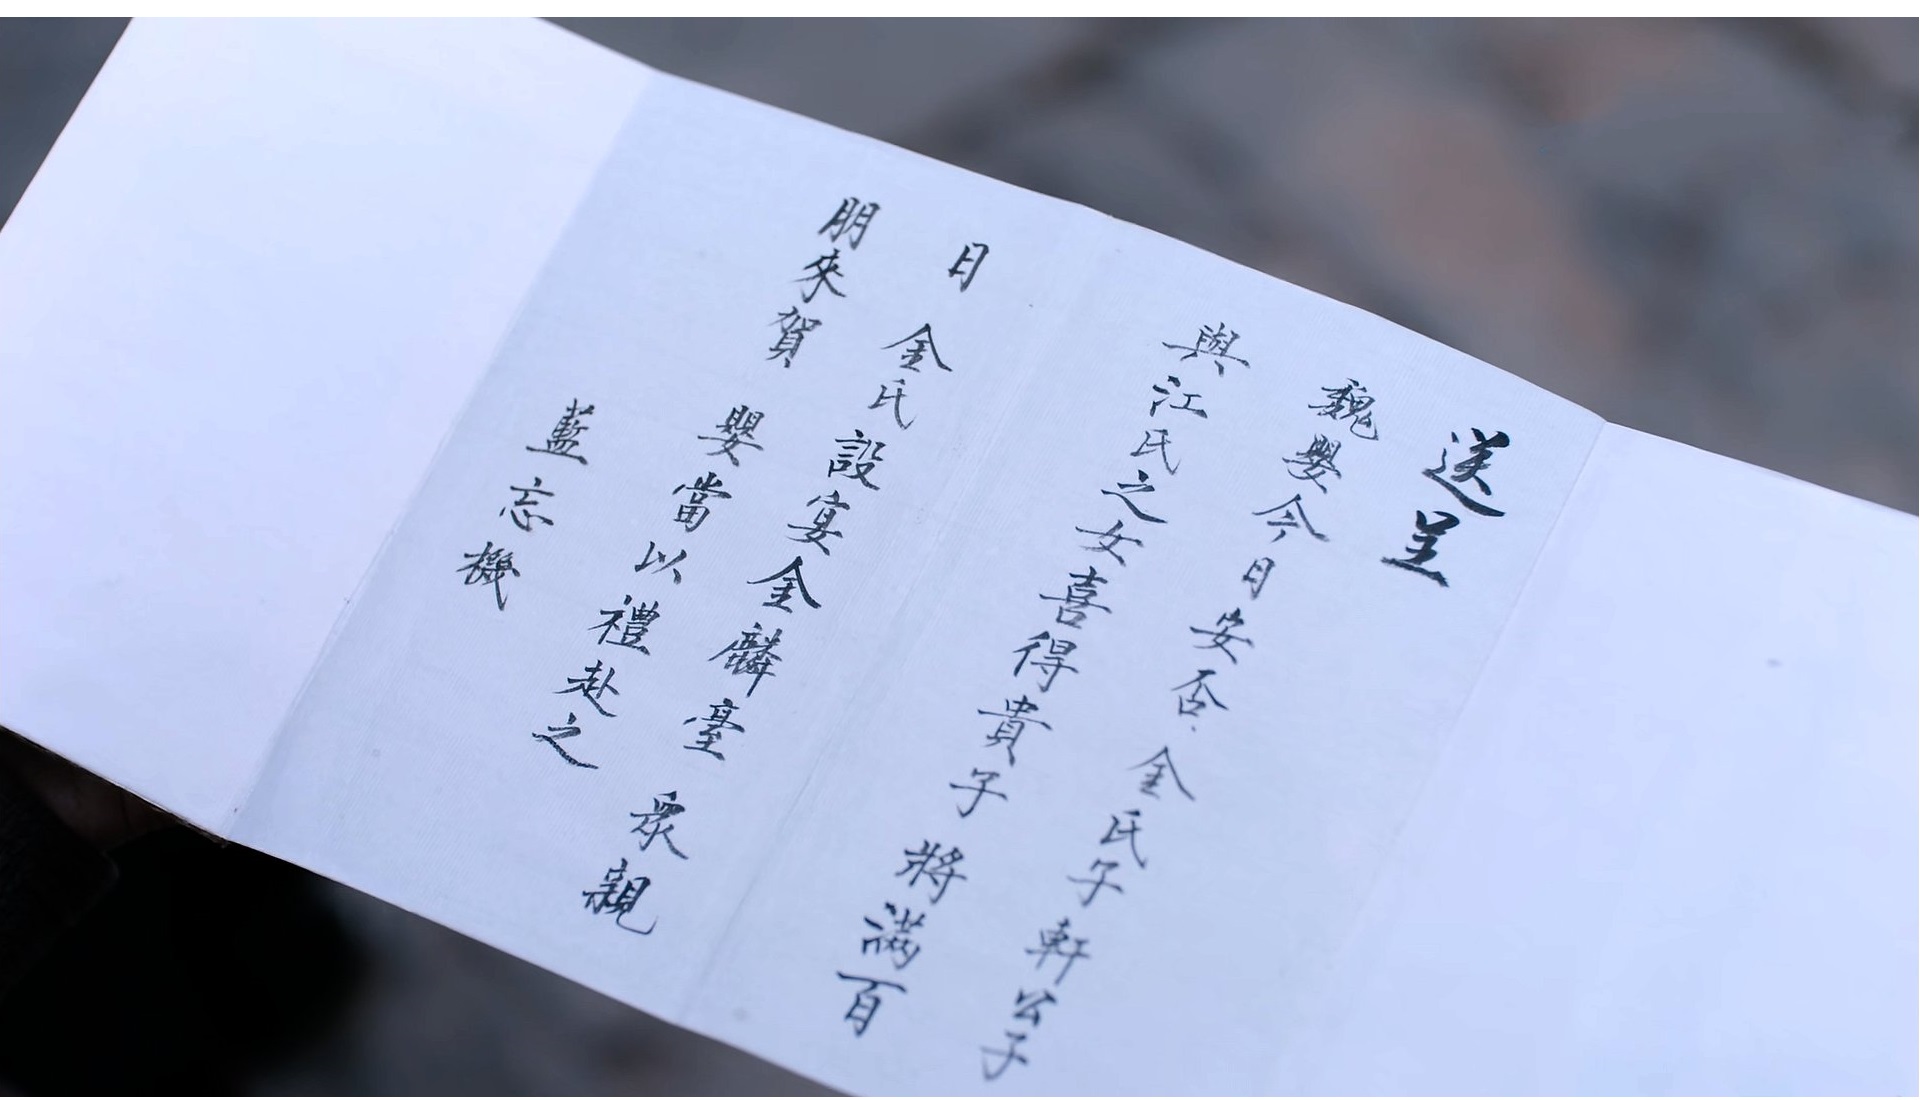 送呈
魏嬰今日安否金氏子軒公子
與江氏之女喜得貴子將滿百
日金氏設宴金麟臺眾親
朋來賀嬰當以禮赴之
藍忘機